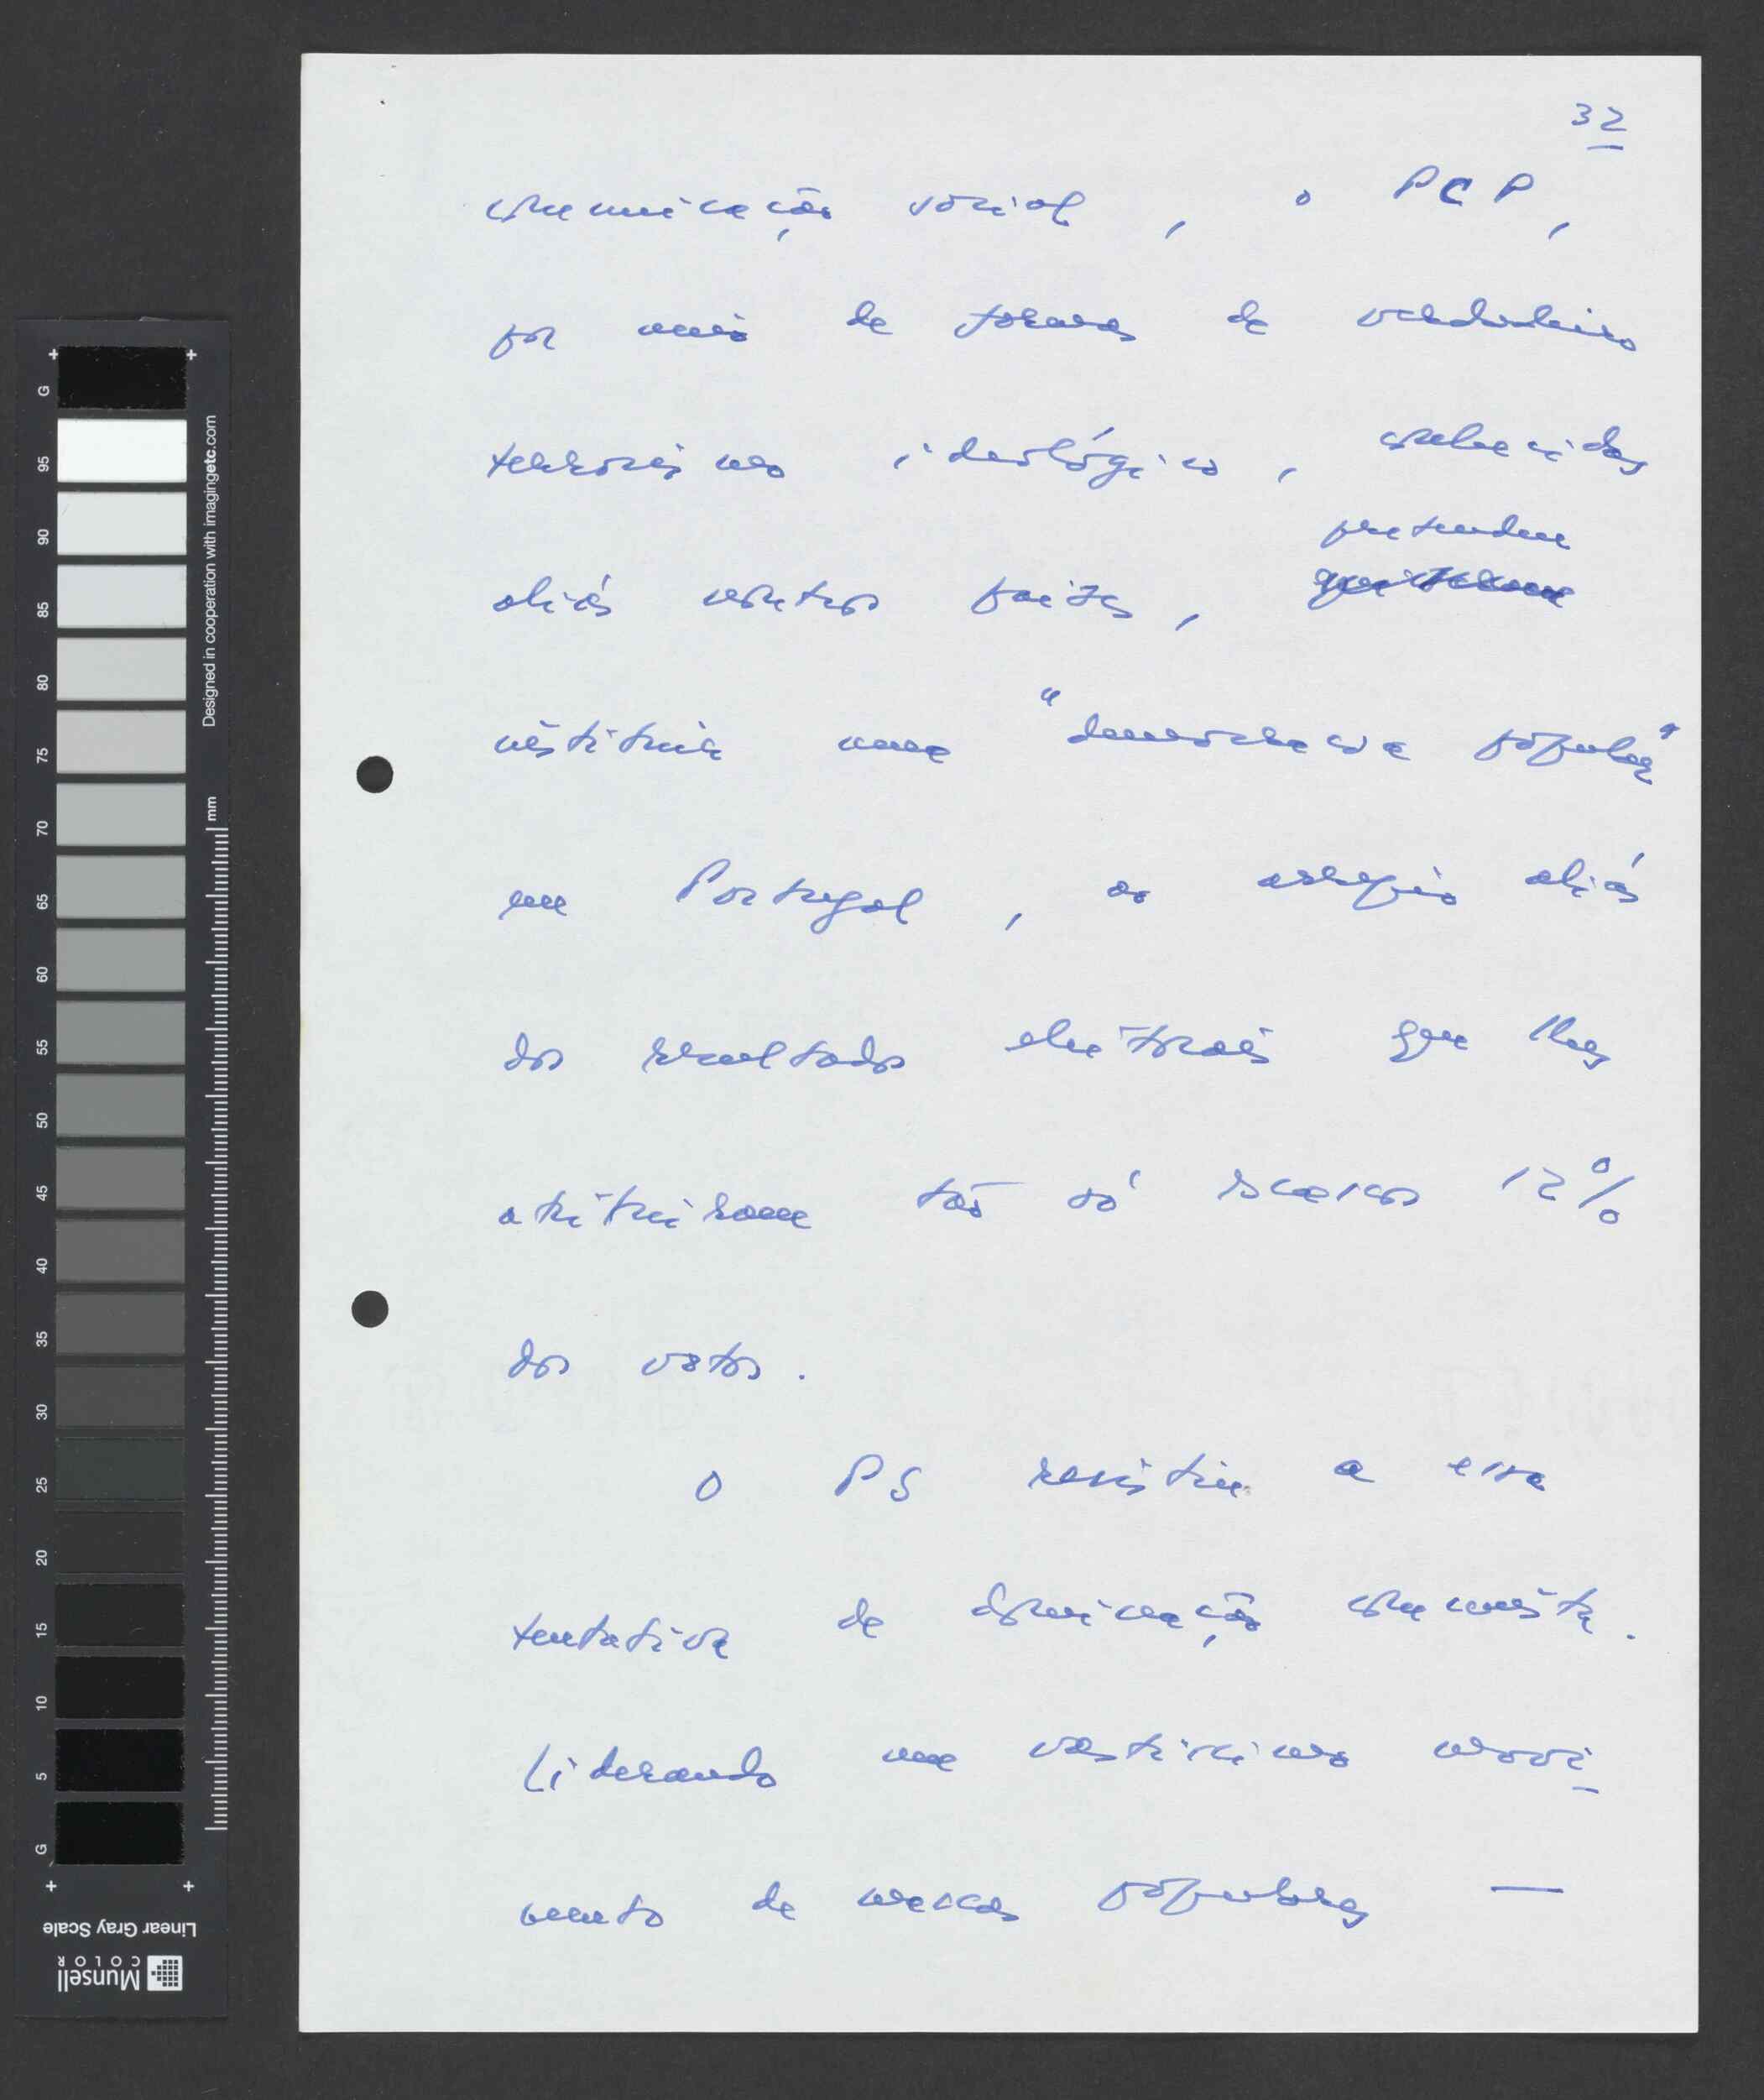 32
comunicação social, o PCP,
por meio de formas de verdadeiro
terrorismo ideológico, conhecidas
pretendeu
aliás noutros países,
instituir uma "democracia popular"
em Portugal, ao arrepio aliás
dos resultados eleitorais que lhes
atribuiram tão só escassos 12%
dos votos.
O PS resistiu a essa
tentativa de dominação comunista.
Liderando um vastíssimo movi
mento de massas populares —
G
95
90
85
80
75
70
65
60
55
50
45
40
35
30
25
20
15
10
5
G
Designed in cooperation with imagingetc.com
mm
Linear Gray Scale
Munsell
COLOR